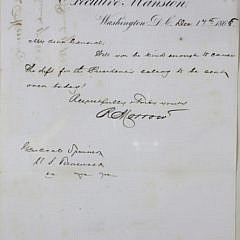 Executive Mansion,
Washington, D.C. Dec 17th 1865
My dear General.
Will you be kind enough to cause
the dft for the President's salary to be sent
over today?
Respectfully Yours
R Morrow
General Spinner
U.S. Treasurer